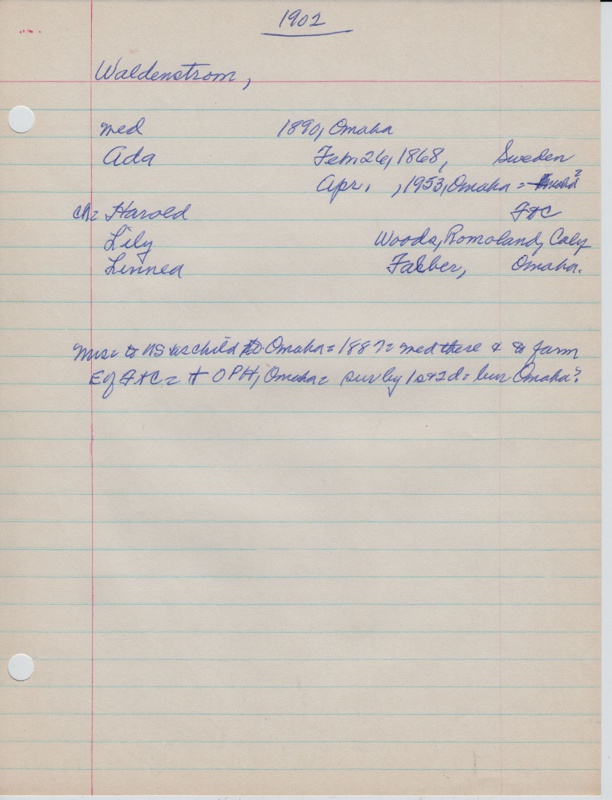 1902
Waldenstrom,
med 1890, Omaha
Ada Feb. 26, 1868, Sweden
Apr. , 1953, Omaha =
ch= Harold F&C
Lily Woods, Romoland, Calif
Linnea Omaha.
Mrs= to US as child to Omaha= 1887= med there & to farm
E of F&C= + OPH, Omaha= sur by 1s & 2d= bur Omaha?